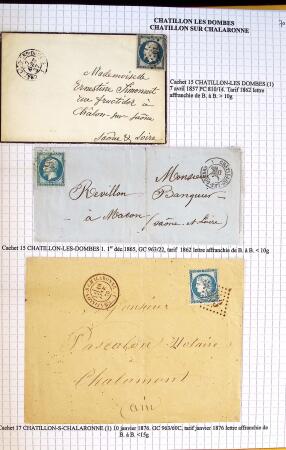 CHATILLON LES DOMBES
CHATILLON SUR CHALARONNE
70
Mademoiselle
Ernestine Simonnet
rue fructidor à
Châlon sur Saône
Saône & Loire
Cachet 15 CHATILLON-LES-DOMBES (1)
7 avril 1857 PC 810/16. Tarif 1862 lettre
affranchie de B. à B. > 10g
Monsieur
Revillon Banquier
à Macon
(Saône et Loire)
Cachet 15 CHATILLON-LES-DOMBES 1. 1er déc.1865, GC 963/22, tarif 1862 lettre affranchie de B. à B. < 10g
Monsieur
Pascalon Notaire
à Chalamont
(Ain)
Cachet 17 CHATILLON-S-CHALARONNE (1) 10 janvier 1876. GC 963/60C, tarif janvier 1876 lettre affranchie de
B. à B. <15g